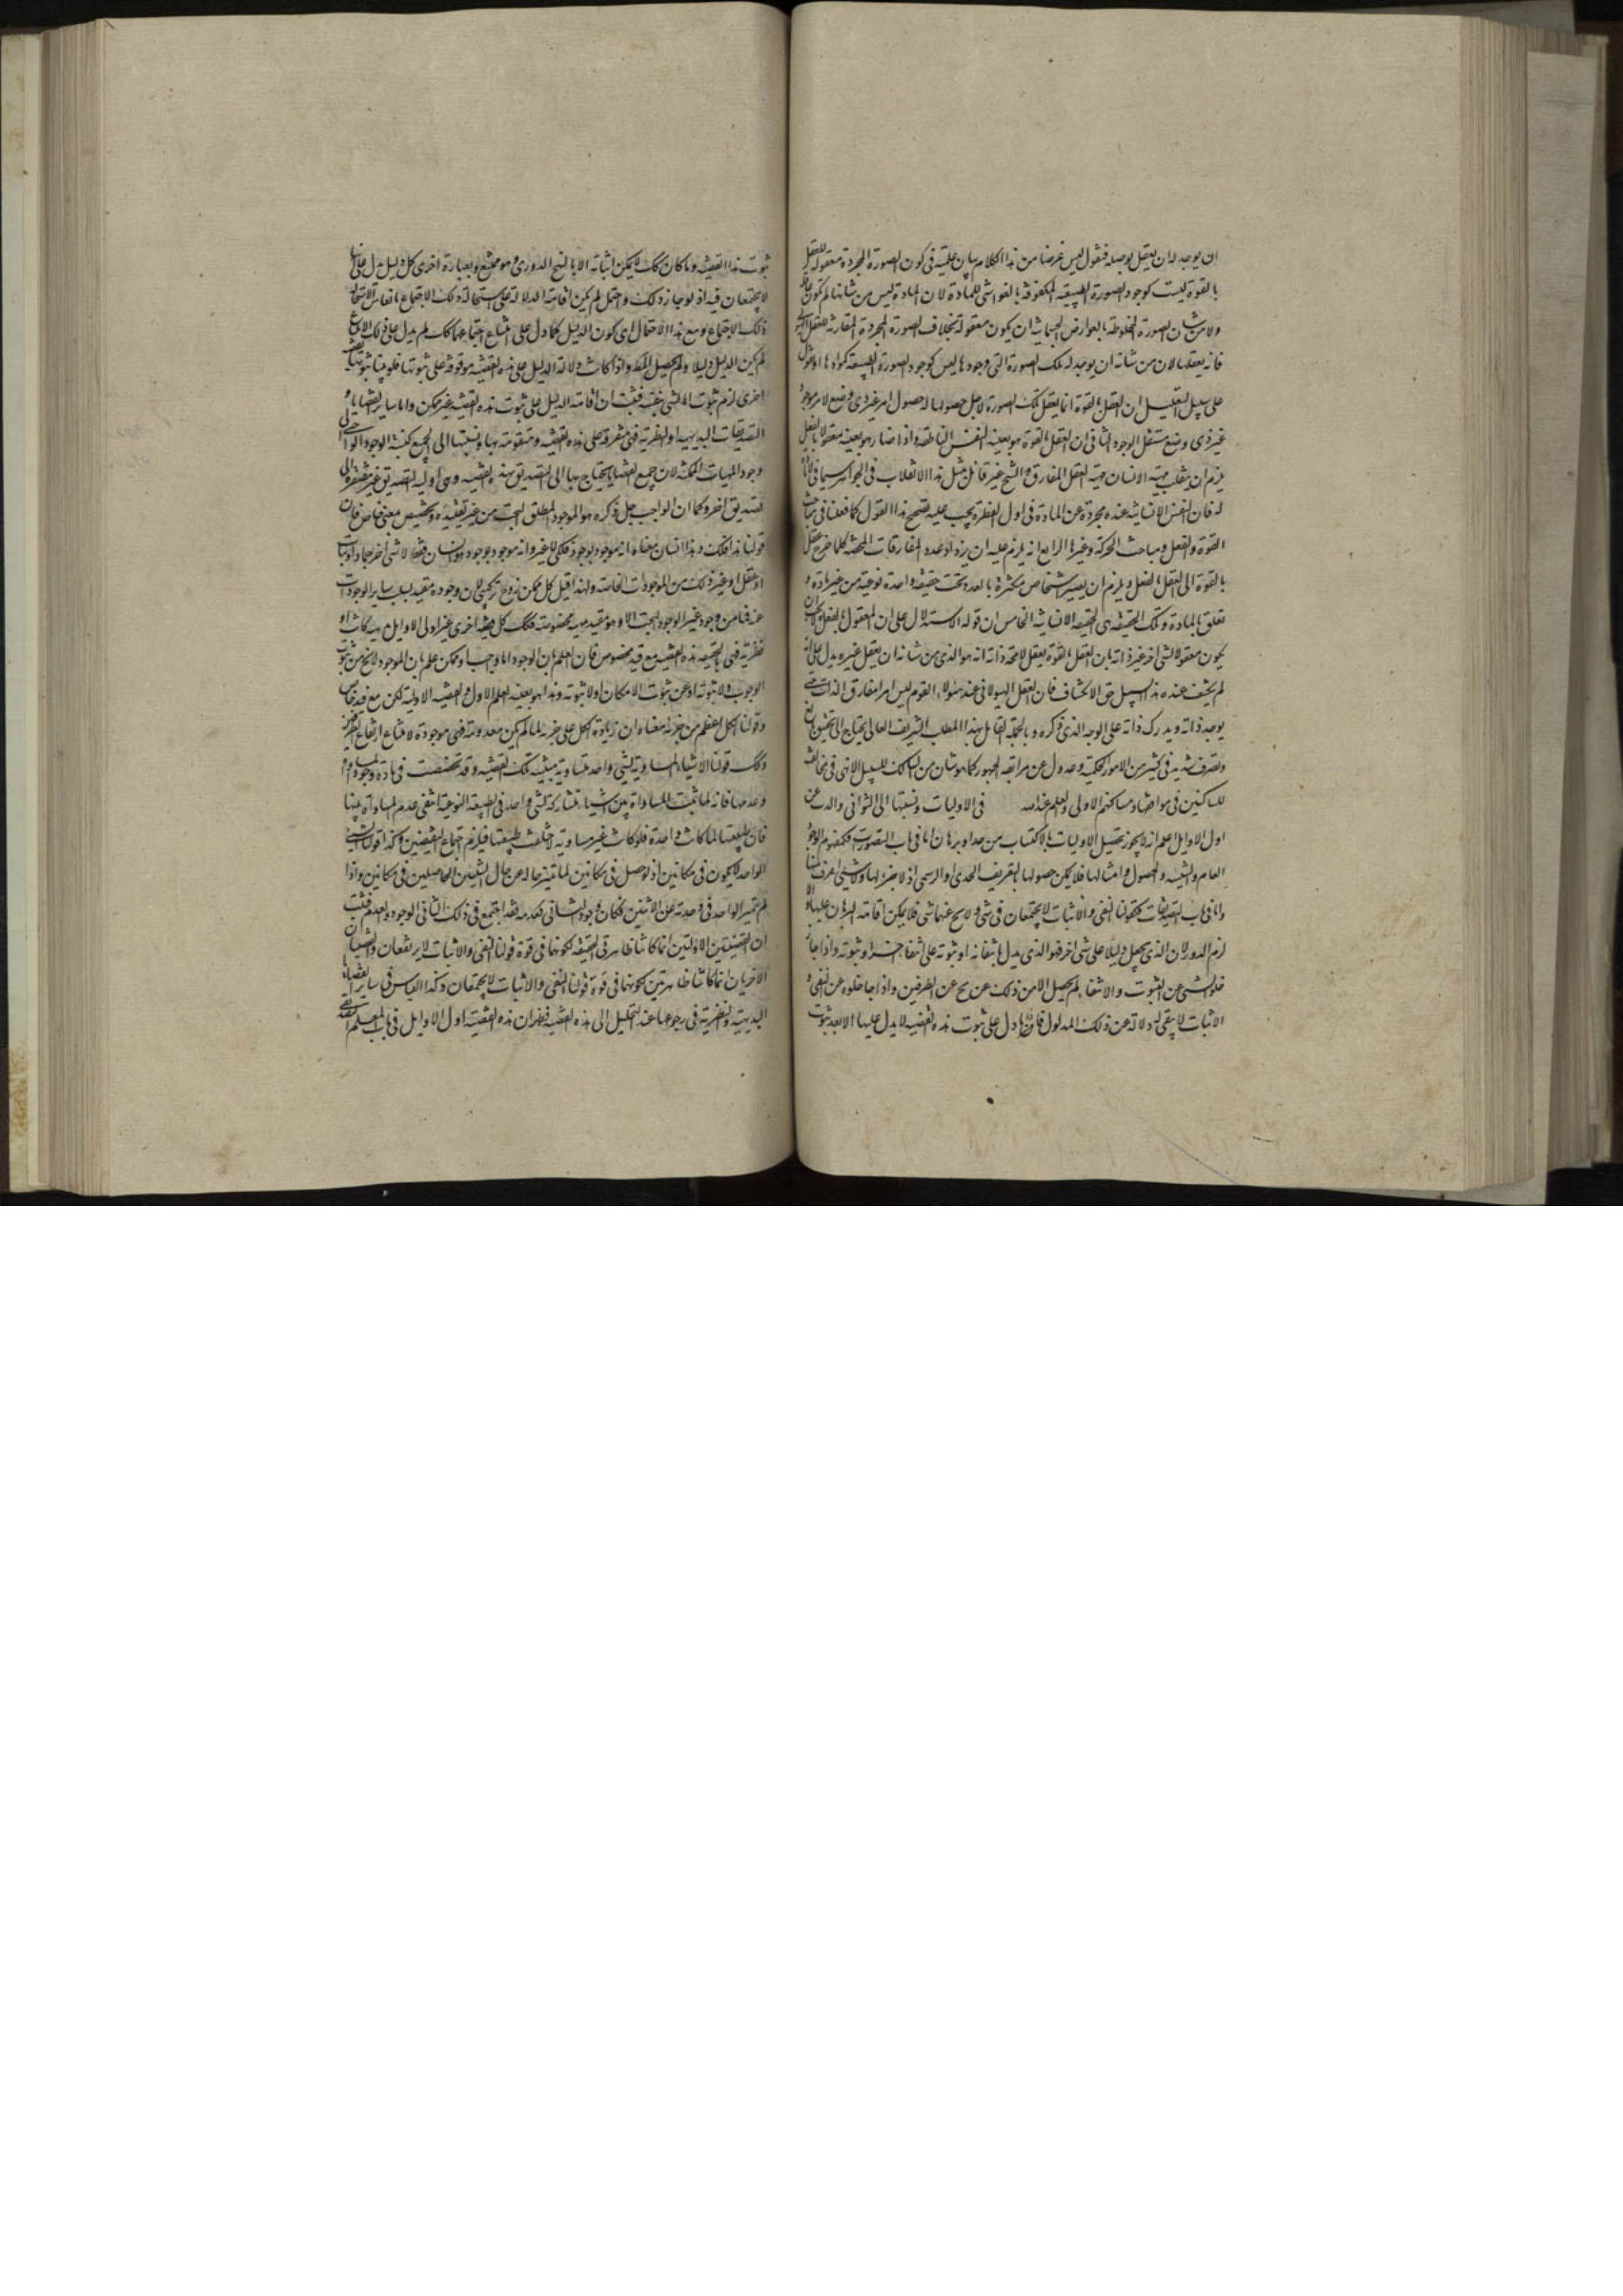 ان يوجد له ان يعقل يوصله فنقول ليس غرضنا من هذا الكلام بيان علية فى كون الصورة المجردة معقولة للعقل
بالقوة ليست كوجود الصورة الطبيعية المكفوفة بالغواشى للمادة لان المادة ليس من شانها لم تكون
ولا من شان الصورة المخلوطة بالعوارض الجسمانية ان يكون معقولة بخلاف الصورة المجردة المقارنة للعقل
فانه يعقلها لان من شانه ان يوجد له تلك الصورة التى وجودها ليس كوجود الصورة الطبيعية لموادها
على سبيل التعليل ان العقل بالقوة انما يعقل تلك الصورة لاجل حصولها له حصول امر غير ذى وضع لامر موجود
غير ذى وضع مستقل الوجود الثانى ان العقل بالقوة هو بعينه النفس الناطقة واذا صار هو بعينه معقولا بالفعل
يلزم ان ينقلب مهية الانسان مهية العقل المفارق والشيخ غير قائل بمثل هذا الانقلاب فى الجواهر سيما فى
له فان النفس الانسانية عنده مجردة عن المادة فى اول الفطرة يجب عليه تصحيح هذا القول كما فعلنا فى مباحث
القوة والفعل ومباحث الحركة وغيرها الرابع انه يلزم عليه ان يزداد عدد المفارقات المحضة كلما خرج عقل
بالقوة الى العقل بالفعل ويلزم ان يصير اشخاص متكثرة بالعدد تحت حقيقة واحدة نوعية من غير مادة و
تعلق بالمادة وتلك الحقيقة هى الحقيقة الانسانية الخامس ان قوله الاستدلال على ان المعقول بالفعل
يكون معقولا لشى اخر غير ذاته بان العقل بالقوة يعقل لا محة ذاته انه هو الذى من شانه ان يعقل غيره يدل على انه
لم يكشف عنده هذا السبيل حق الانكشاف فان العقل الهيولانى عند هؤلاء القوم ليس امرا مفارق الذات حتى
يوجد ذاته ويدرك ذاته على الوجه الذى ذكره وبالجملة القائل بهذا المطلب الشريف العالى يحتاج الى تحقيق بالغ
وتصرف شديد فى كثير من الامور الحكمية وعدول عن مرابقة الجمهور كما هو شان من السالك للسبيل الالهى فى مخالفته
للساكنين فى مواضعهم ومساكنهم الاولى والعلم عند الله فى الاوليات ونسبتها الى الثوانى والذب عن
اول الاوايل اعلم انه لا يجوز تحصيل الاوليات بالاكتساب من حد او برهان اما فى باب التصورات فكمفهوم الوجود
العام والشيئية والحصول وامثالها فلا يمكن حصولها بالتعريف الحدى او الرسمى اذ لا جزء لها ولا شى اعرف منها
واما فى باب التصديقات كقولنا النفى والاثبات لا يجتمعان فى شى ولا يخلو عنهما شى فلا يمكن اقامة البرهان عليها والا
لزم الدور لان الذى يجعل دليلا على شى اخر فهو الذى يدل بانتفائه او ثبوته على انتفاء شى اخر او ثبوته واذا جاز
خلو الشى عن الثبوت والانتفاء لم يحصل الامن ذلك عن مح عن الطرفين واذا جاز خلوه عن النفى و
الاثبات لا يبقى له دلالة عن ذلك المدلول فان ما دل على ثبوت هذه القضية لا يدل عليها الا بعد ثبوت
ثبوت هذا القضية وما كان كك لا يمكن اثباته الا بالنهج الدورى وهو ممتنع وبعبارة اخرى كل دليل يدل على
لا يجتمعان فيه اذ لو جاز ذلك واحتمل لم يكن اقامة الدلالة على استحالة ذلك الاجتماع مانعا من استحالة
ذلك الاجتماع ومع هذا الاحتمال اى كون الدليل كما دل على امتناع اجتماعهما كك لم يدل على ذلك الامتناع
لم يكن الدليل دليلا ولم يحصل المط واذا كانت دلالة الدليل على هذه القضية موقوفة على ثبوتها فلو بينا ثبوتها بقضية
اخرى لزم ثبوت الشى بنفسه فثبت ان اقامة الدليل على ثبوت هذه القضية غير ممكن واما ساير القضايا و
التصديقات البديهية او النظرية فهى متفرعة على هذه القضية ومتقومة بها ونسبتها الى الجميع كنسبة الوجود الواجبى الى
وجود المهيات الممكنة لان جميع القضايا يحتاج بها الى التصديق بهذه القضية وهى اولية التصديق غير مفتقرة الى
تصديق اخر وكما ان الواجب جل ذكره هو الموجود المطلق البحت من غير تقييده وتخصيص بمعنى خاص فان
قولنا هذا فلك وهذا انسان معناه انه موجود بوجود فلكى لا غير وانه موجود بوجود الانسان فقط لا شى اخر جمادا ونبات
او عقل او غير ذلك من الموجودات الخاصة ولهذا قيل كل ممكن زوج تركيبى لان وجوده مقيد بسلب ساير الوجودات
عنه فما من وجود غير الوجود البحت الا وهو مقيد بمهية مخصوصة فكك كل قضية اخرى غير اولى الاوايل بديهية كانت او
نظرية فهى بالحقيقة هذه القضية مع قيد مخصوص فان العلم بان الوجود اما واجب او ممكن علم بان الموجود لا يخ من ثبوت
الوجوب ولا ثبوته او من ثبوت الامكان ولا ثبوته وهذا هو بعينه العلم الاول والقضية الاولية لكن مع قيد خاص
وقولنا الكل اعظم من جزئه معناه ان زيادة الكل على جزئه لما لم يكن معدومة فهى موجودة لامتناع ارتفاع الطرفين
وكك قولنا الاشياء المساوية لشى واحد متساوية مبنية تلك القضية وقد تخصصت فى مادة وجود المساواة و
وعدمها فانه لما ثبت المساواة بين اشياء متشاركة لشى واحد فى الطبيعة النوعية انتفى عدم المساواة بينها
فان طبيعتها لما كانت واحدة فلو كانت غير مساوية لاختلفت طبيعتها فيلزم اجتماع النقيضين وكذا قولنا الشى
الواحد لا يكون فى مكانين اذ لو حصل فى مكانين لما تميز حاله عن حال الشيئين الحاصلين فى مكانين واذا
لم يتميز الواحد فى وحدته عن الاثنين فكان وجود الثانى كعدمه فقد اجتمع فى ذلك الثانى الوجود والعدم فثبت
ان القضيتين الاوليتين انما كانتا ظاهرتى الحقيقة لكونهما فى قوة قولنا النفى والاثبات لا يرتفعان والقضيتان
الاخريان انما كانتا ظاهرتين لكونهما فى قوة قولنا النفى والاثبات لا يجتمعان وكذا القياس فى ساير القضايا
البديهية والنظرية فى رجوعها عند التحليل الى هذه القضية فظهر ان هذه القضية اول الاوايل فى باب العلم